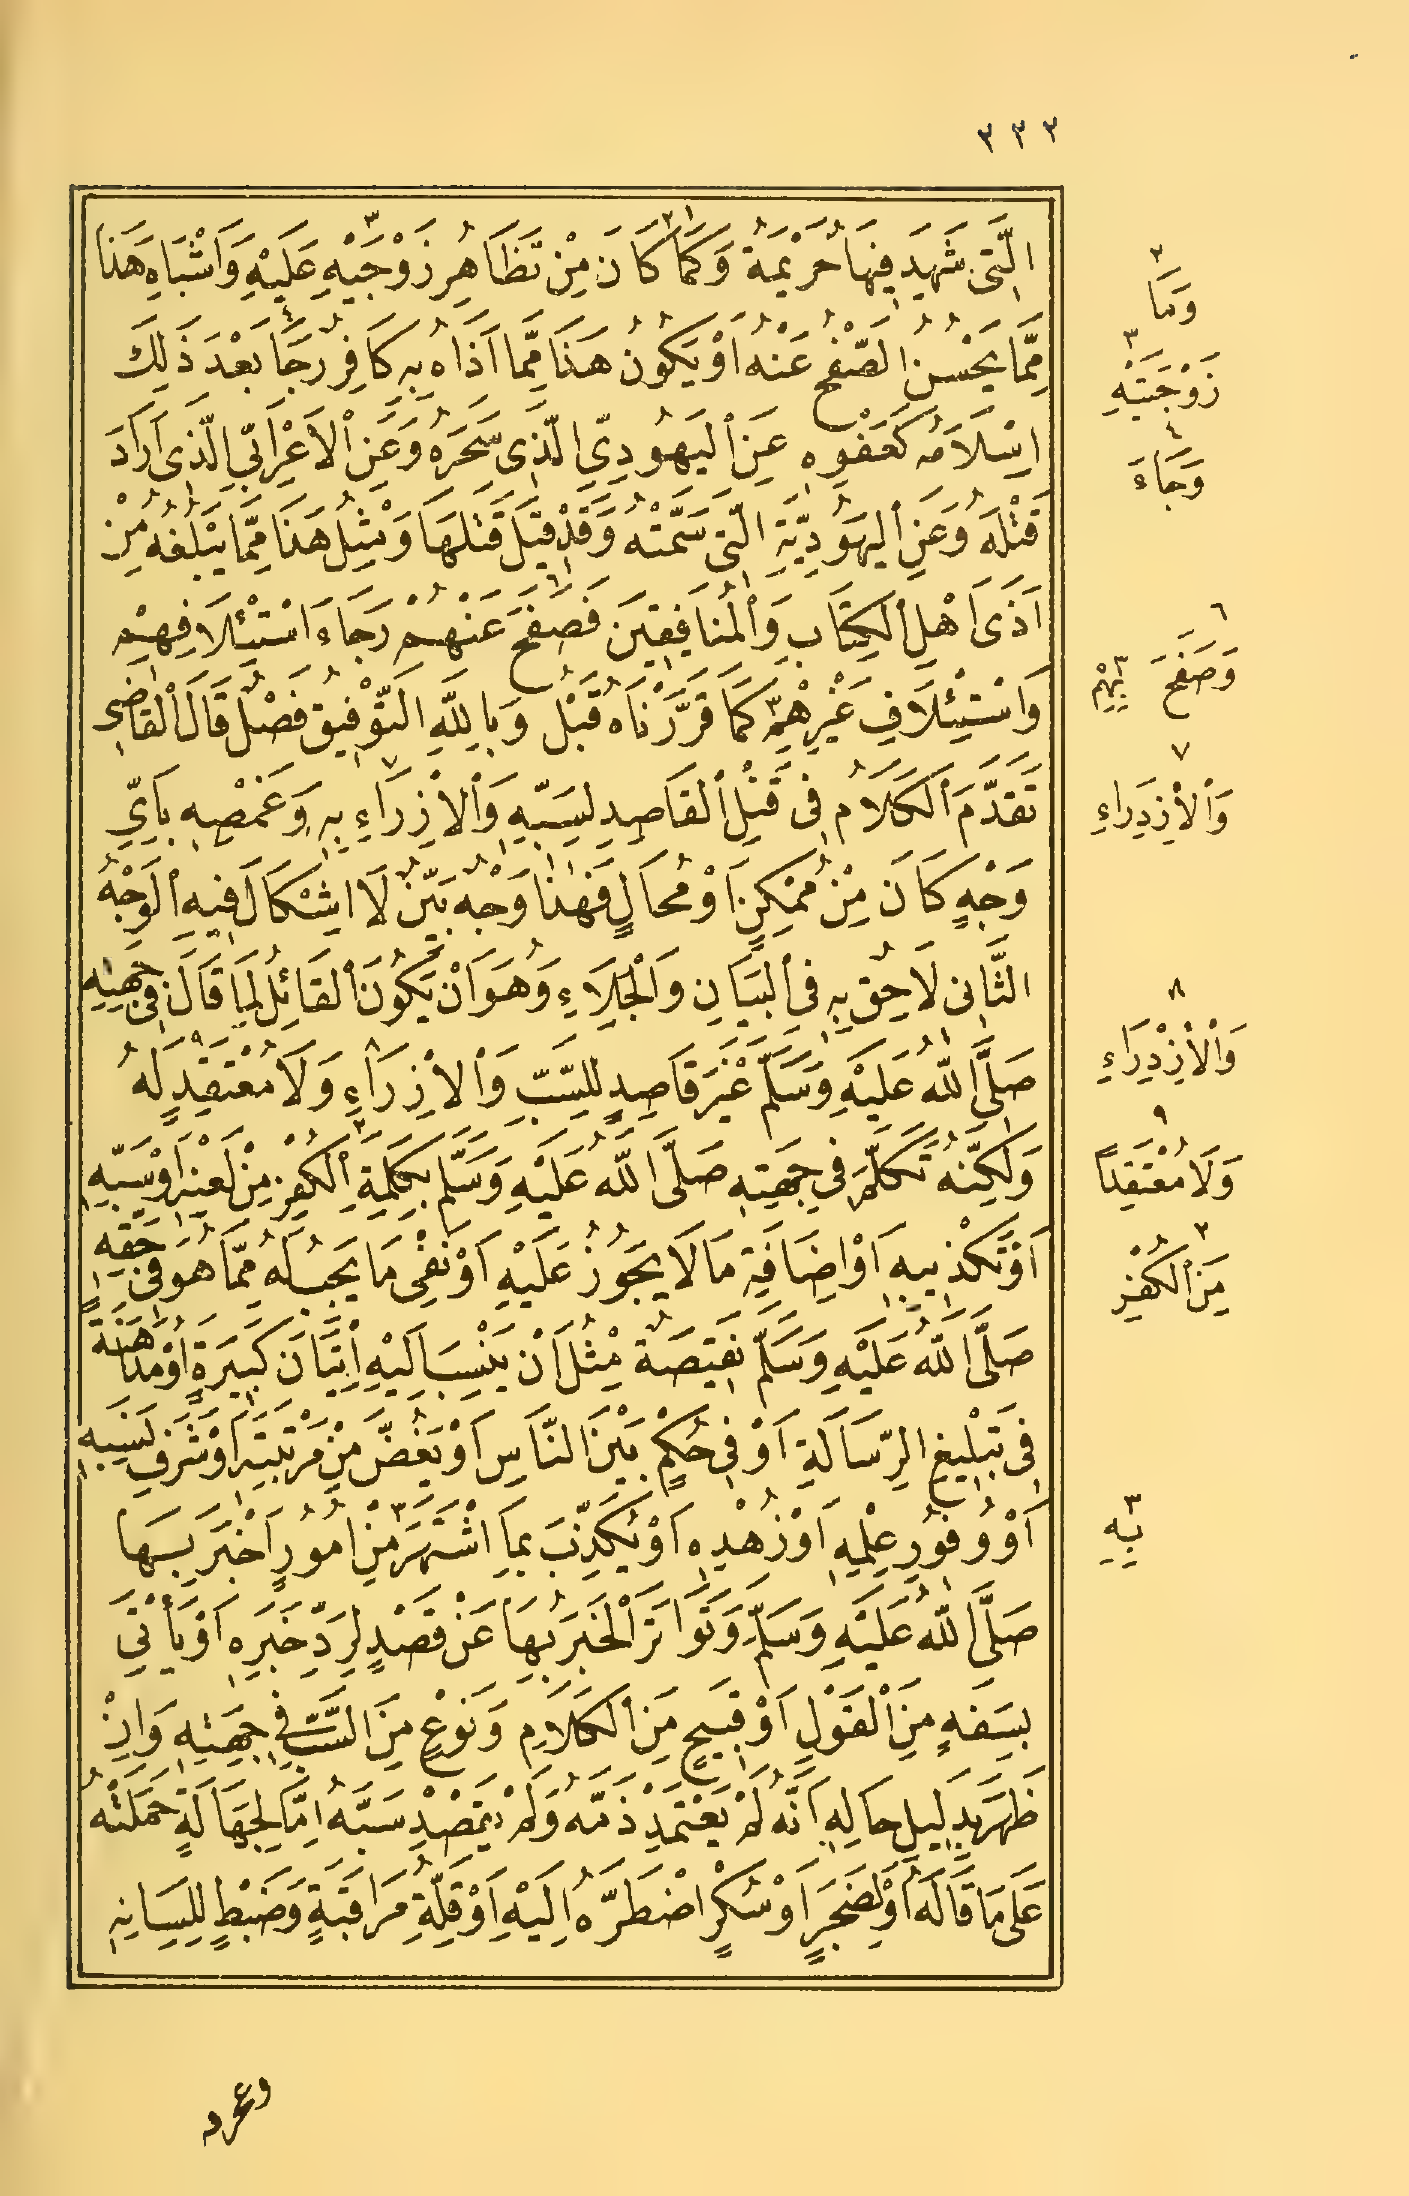 ٣٣٣
الَّتِى شَهِدَ فِيهَا خُزَيْمَةُ وَكَمَا كَانَ مِنْ تَظَاهُرِ زَوْجَيْهِ عَلَيْهِ وَاَشْبَاهِ هَذَا
مِمَّا يَحْسُنُ الصَّفْحُ عَنْهُ اَوْ يَكُونُ هَذَا مِمَّا اَذَاهُ بِهِ كَافِرٌ رَجَا بَعْدَ ذَلِكَ
اِسْلَامَهُ كَعَفْوِهِ عَنِ الْيَهُودِيِّ الَّذِى سَحَرَهُ وَعَنِ الْاَعْرَابِيِّ الَّذِى اَرَادَ
قَتْلَهُ وَعَنِ الْيَهُودِيَّةِ الَّتِى سَمَّتْهُ وَقَدْ قِيلَ قَتَلَهَا وَمِثْلُ هَذَا مِمَّا يَبْلُغُهُ مِنْ
اَذَى اَهْلِ الْكِتَابِ وَالْمُنَافِقِينَ فَصَفَحَ عَنْهُمْ رَجَاءَ اسْتِئْلَافِهِمْ
وَاسْتِئْلَافِ غَيْرِهِمْ كَمَا قَرَّرْنَاهُ قَبْلُ وَبِاللّٰهِ التَّوْفِيقُ فَصْلٌ قَالَ الْقَاضِى
تَقَدَّمَ الْكَلَامُ فِى قَتْلِ الْقَاصِدِ لِسَبِّهِ وَالْاِزِرَاءِ بِهِ وَغَمْصِهِ بِاَيِّ
وَجْهٍ كَانَ مِنْ مُمْكِنٍ اَوْ مُحَالٍ فَهٰذَا وَجْهٌ بَيِّنٌ لَا اِشْكَالَ فِيهِ الْوَجْهُ
الثَّانِى لَاحِقٌ بِهِ فِى الْبَيَانِ وَالْجَلَاءِ وَهُوَ اَنْ يَكُونَ الْقَائِلُ لِمَا قَالَ فِى جِهَتِهِ
صَلَّى اللّٰهُ عَلَيْهِ وَسَلَّمَ غَيْرَ قَاصِدٍ لِلسَّبِّ وَالْاِزِرَاءِ وَلَا مُعْتَقِدٍ لَهُ
وَلَكِنَّهُ تَكَلَّمَ فِى جِهَتِهِ صَلَّى اللّٰهُ عَلَيْهِ وَسَلَّمَ بِكَلِمَةِ الْكُفْرِ مِنْ لَعْنِهِ اَوْ سَبِّهِ
اَوْ تَكْذِيبِهِ اَوْ اِضَافَةِ مَا لَا يَجُوزُ عَلَيْهِ اَوْ نَفْىِ مَا يَجِبُ لَهُ مِمَّا هُوَ فِى حَقِّهِ
صَلَّى اللّٰهُ عَلَيْهِ وَسَلَّمَ نَقِيصَةٌ مِثْلُ اَنْ يَنْسِبَ اِلَيْهِ اِتْيَانَ كَبِيرَةٍ اَوْ مُدَاهَنَةً
فِى تَبْلِيغِ الرِّسَالَةِ اَوْ فِى حُكْمٍ بَيْنَ النَّاسِ اَوْ يَغُضَّ مِنْ مَرْتَبَتِهِ اَوْ شَرَفِ نَسَبِهِ
اَوْ وُفُورِ عِلْمِهِ اَوْ زُهْدِهِ اَوْ يُكَذِّبَ بِمَا اشْتَهَرَ مِنْ اُمُورٍ اَخْبَرَ بِهَا
صَلَّى اللّٰهُ عَلَيْهِ وَسَلَّمَ وَتَوَاتَرَ الْخَبَرُ بِهَا عَنْ قَصْدٍ لِرَدِّ خَبَرِهِ اَوْ يَأْتِيَ
بِسَفَهٍ مِنَ الْقَوْلِ اَوْ قَبِيحٍ مِنَ الْكَلَامِ وَنَوْعٍ مِنَ السَّبِّ فِى جِهَتِهِ وَاِنْ
ظَهَرَ بِدَلِيلِ حَالِهِ اَنَّهُ لَمْ يَعْتَمِدْ ذَمَّهُ وَلَمْ يَقْصِدْ سَبَّهُ اِمَّا لِجَهَالَةٍ حَمَلَتْهُ
عَلَى مَا قَالَهُ اَوْ لِضَجَرٍ اَوْ سُكْرٍ اضْطَرَّهُ اِلَيْهِ اَوْ قِلَّةِ مُرَاقَبَةٍ وَضَبْطٍ لِلِسَانِهِ
٢
وَمَا
٣
زَوْجَتَيْهِ
٤
وَجَاءَ
٦
وَصَفَحَ
٧
وَالْاِزْدِرَاءِ
٨
وَالْاِزْدِرَاءِ
٩
وَلَا مُعْتَقِدًا
٢
مِنَ الْكُفْرِ
٣
بِهِ